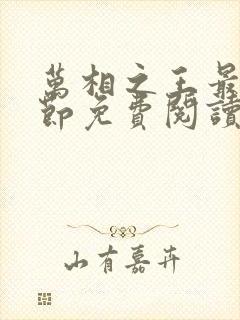 萬相之王最
節免費閱讀
山有嘉卉